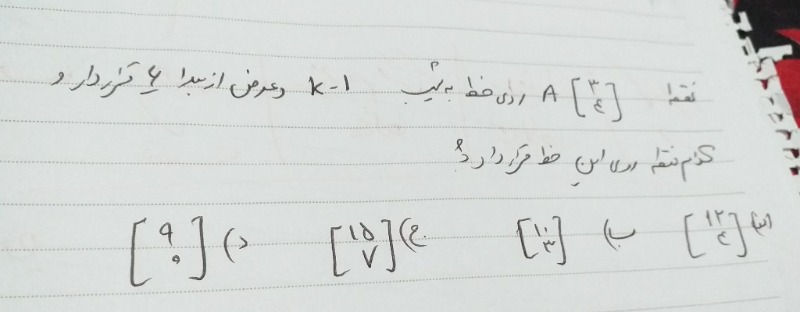 نقطه A [۳ ۴] روی خط به شیب k-1 و عرض از مبدا ۶ قرار دارد و
کدام نقطه روی این خط قرار دارد؟
الف) [۱۲ ۴] ب) [۱۰ ۳] ج) [۱۵ ۷] د) [۹ ۰]